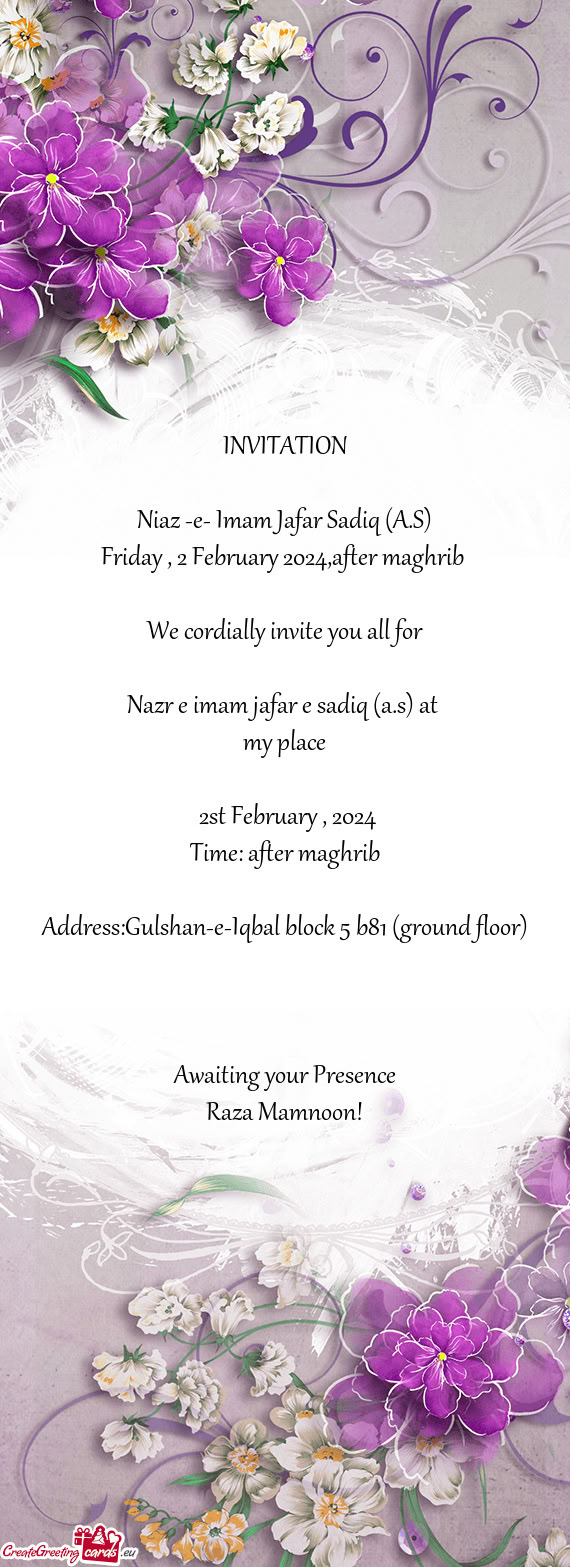 INVITATION
Niaz -e- Imam Jafar Sadiq (A.S)
Friday , 2 February 2024,after maghrib
We cordially invite you all for
Nazr e imam jafar e sadiq (a.s) at
my place
2st February , 2024
Time: after maghrib
Address:Gulshan-e-Iqbal block 5 b81 (ground floor)
Awaiting your Presence
Raza Mamnoon!
CreateGreeting cards .eu